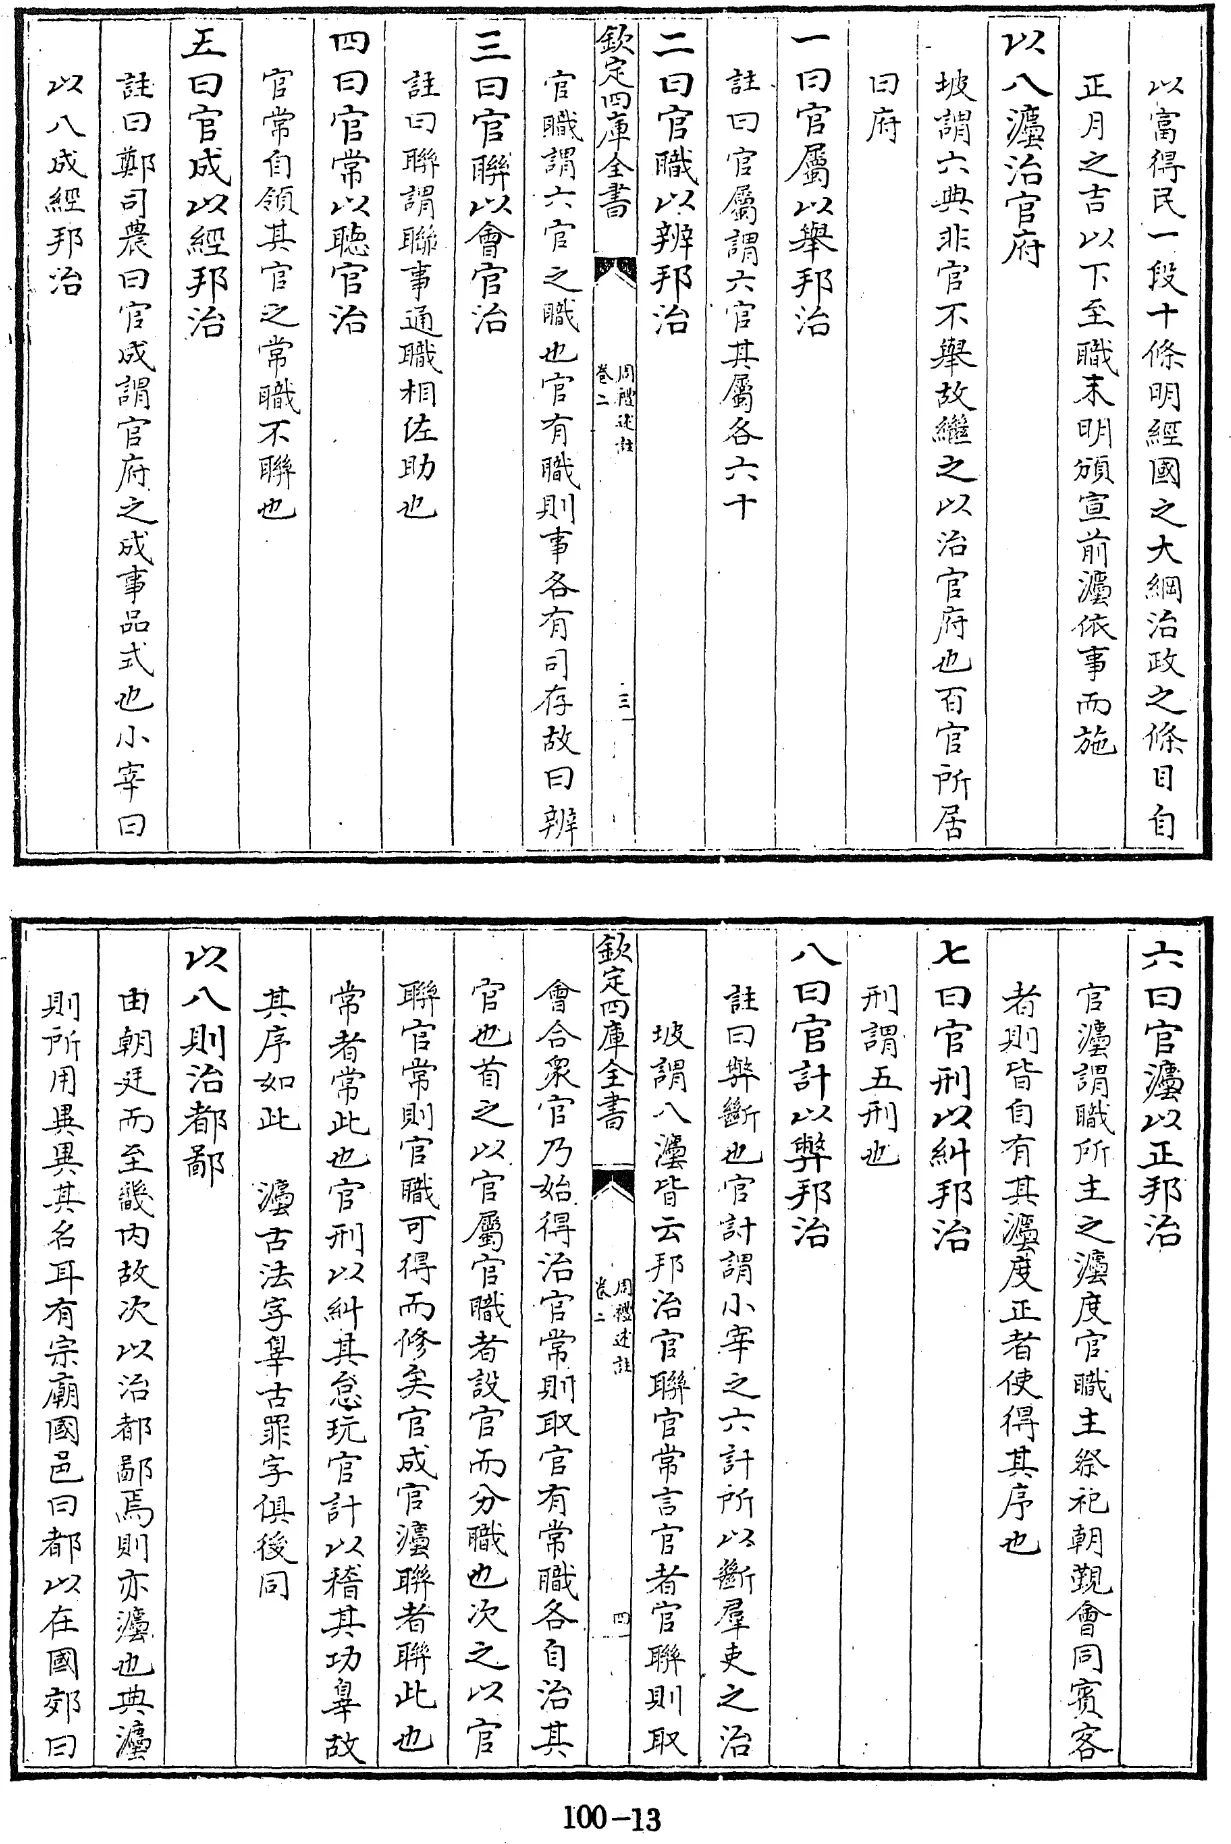 以富得民一段十條明經國之大綱治政之條目自
正月之吉以下至職末明頒宣前灋依事而施
以八灋治官府
坡謂六典非官不舉故繼之以治官府也百官所居
曰府
一曰官屬以舉邦治
註曰官屬謂六官其屬各六十
二曰官職以辨邦治
欽定四庫全書
周禮述註
卷二
三
官職謂六官之職也官有職則事各有司存故曰辨
三曰官聯以會官治
註曰聯謂聯事通職相佐助也
四曰官常以聽官治
官常自領其官之常職不聯也
五曰官成以經邦治
註曰鄭司農曰官成謂官府之成事品式也小宰曰
以八成經邦治
六曰官灋以正邦治
官灋謂職所主之灋度官職主祭祀朝覲會同賓客
者則皆自有其灋度正者使得其序也
七曰官刑以糾邦治
刑謂五刑也
八曰官計以弊邦治
註曰弊斷也官計謂小宰之六計所以斷羣吏之治
坡謂八灋皆云邦治官聯官常言官者官聯則取
欽定四庫全書
周禮述註
卷二
四
會合衆官乃始得治官常則取官有常職各自治其
官也首之以官屬官職者設官而分職也次之以官
聯官常則官職可得而修矣官成官灋聯者聯此也
常者常此也官刑以糾其怠玩官計以稽其功辠故
其序如此 灋古法字辠古罪字俱後同
以八則治都鄙
由朝廷而至畿内故次以治都鄙焉則亦灋也典灋
則所用異異其名耳有宗廟國邑曰都以在國郊曰
100-13